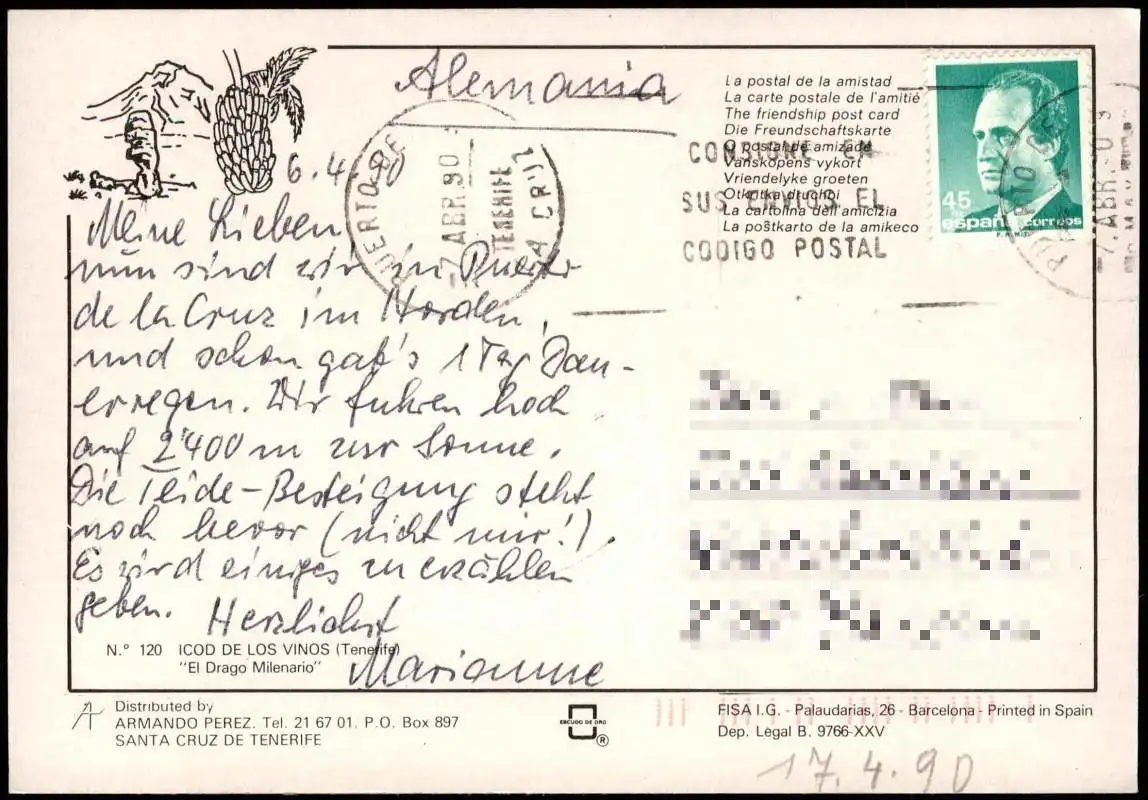 Alemania
La postal de la amistad
La carte postale de l'amitié
The friendship post card
Die Freundschaftskarte
O postal de amizade
Vanskopens vykort
Vriendelyke groeten
Otkritka druchbi
La cartolina dell'amicizia
La poŝtkarto de la amikeco
CONSIGNE EN
SUS ENVIOS EL
CODIGO POSTAL
45
españa correos
PUERTO DE
-7 ABR. 90
TENERIFE
LA CRUZ
-7. ABR.-0 9
6.4.90
Meine Lieben,
nun sind wir in Puerto
de la Cruz im Norden,
und schon gab's 1 Tag Dau-
erregen. Wir fuhren hoch
auf 2'400 m zur Sonne.
Die Teide-Besteigung steht
noch bevor (nicht mir!).
Es wird einiges zu erzählen
geben. Herzlichst
Marianne
N.º 120 ICOD DE LOS VINOS (Tenerife)
"El Drago Milenario"
Distributed by
ARMANDO PEREZ. Tel. 21 67 01. P.O. Box 897
SANTA CRUZ DE TENERIFE
ESCUDO DE ORO
®
FISA I.G. - Palaudarias, 26 - Barcelona - Printed in Spain
Dep. Legal B. 9766-XXV
17.4.90